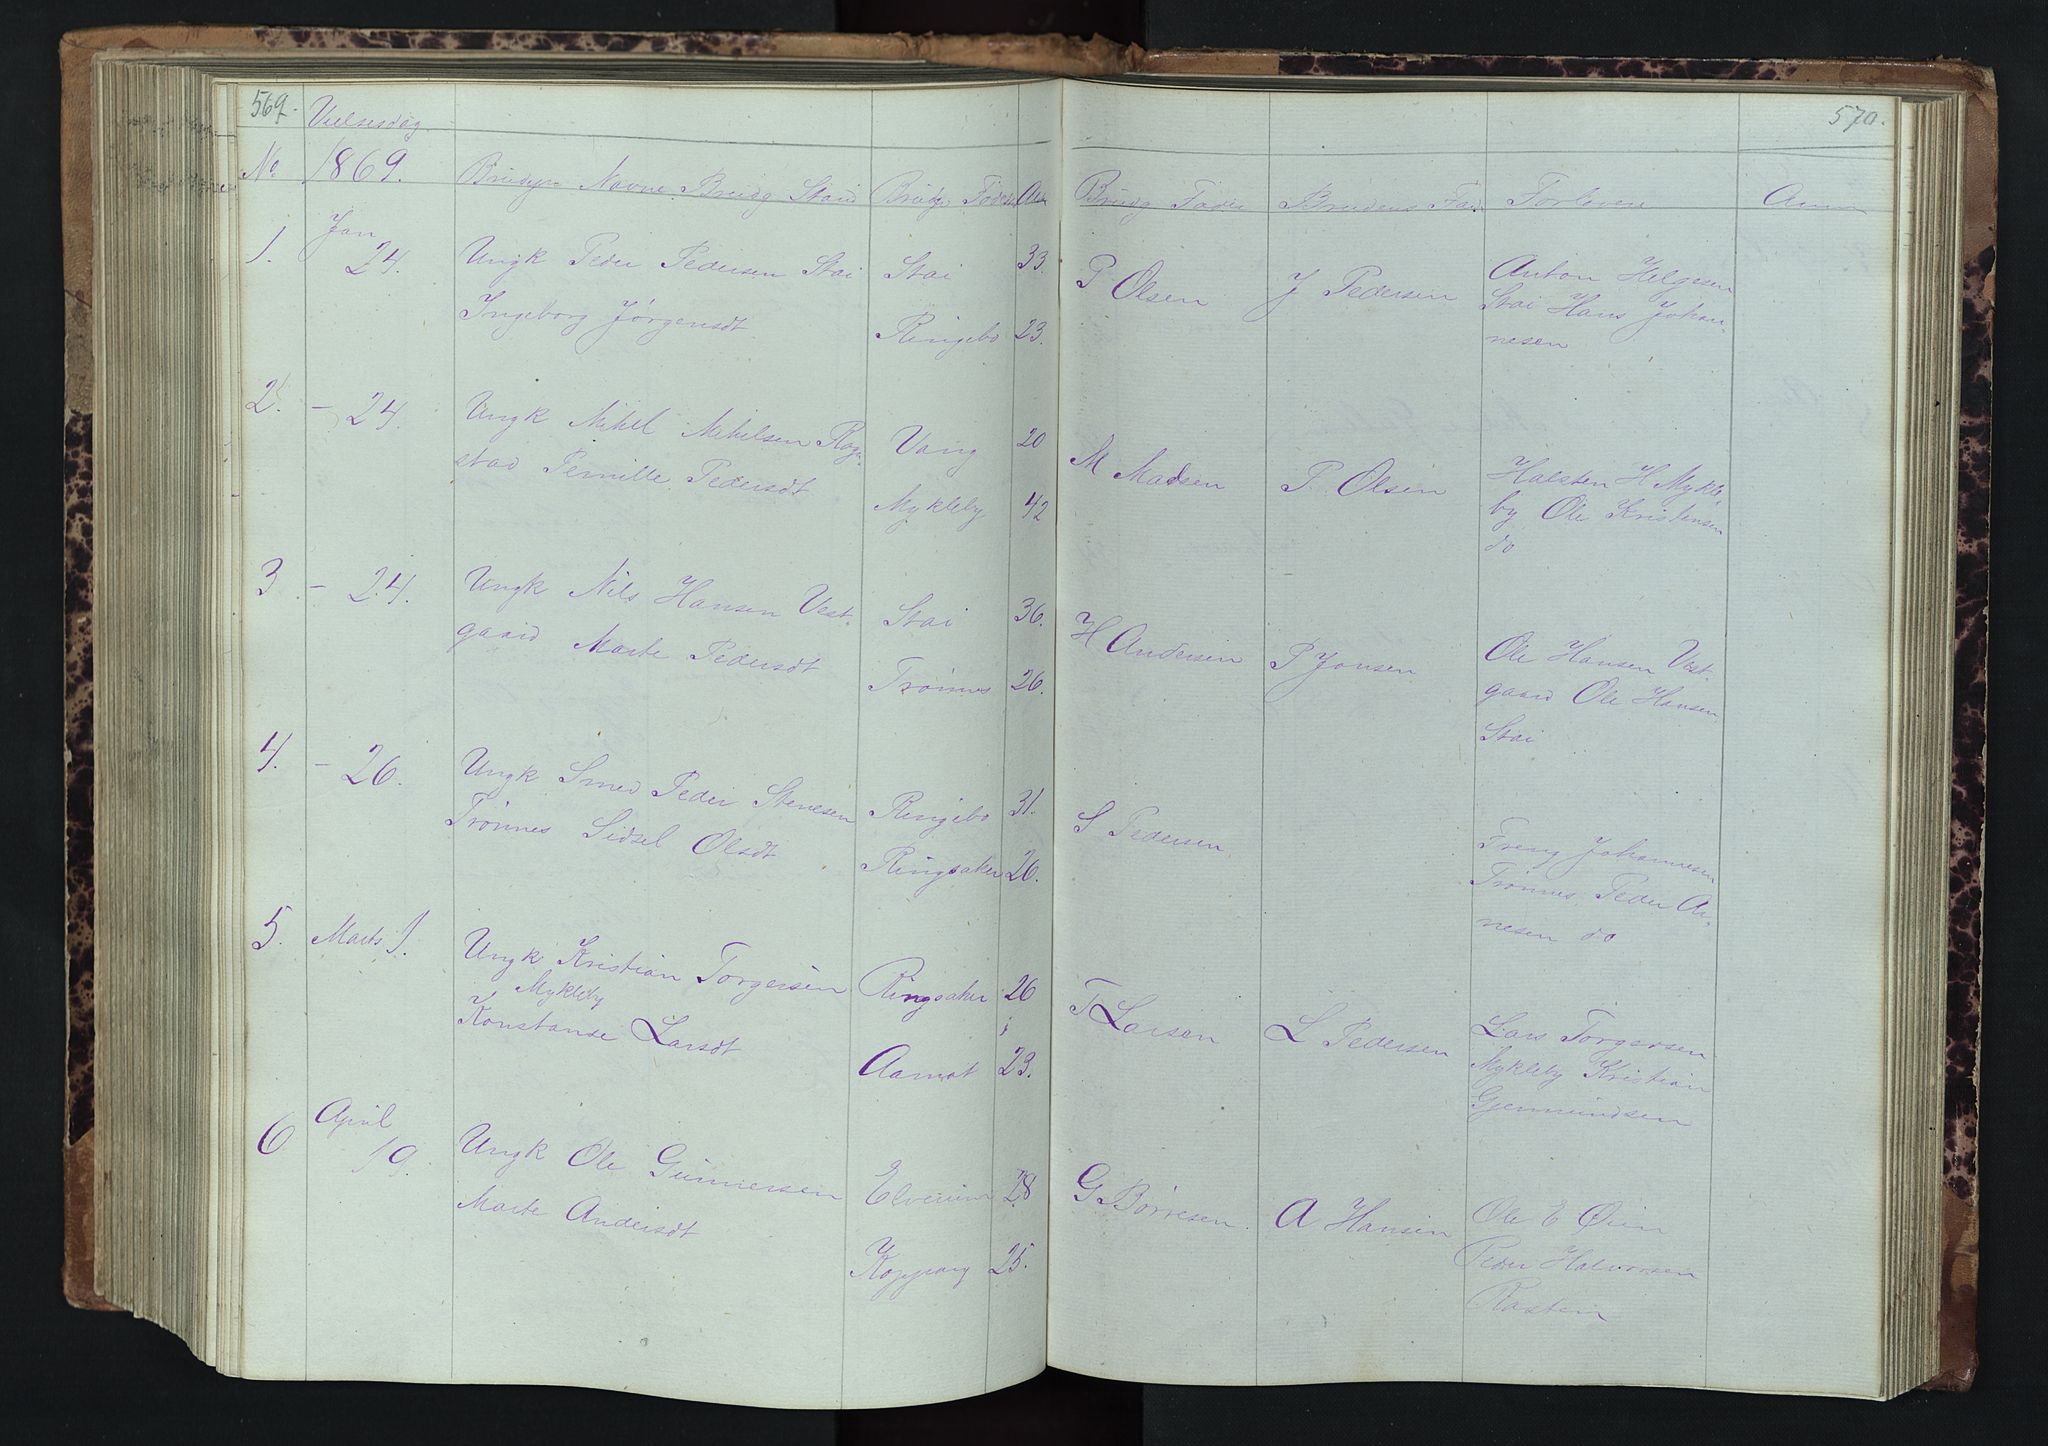 569.
Vielsesdag
No 1869. Brudgs Navne Brudg Stand Brudgs Fødest Alder
Jan
1. 24. Ungk Peder Pedersen Stai Stai 33.
Ingeborg Jørgensdt Ringebo 23.
2. – 24. Ungk Mikel Mikelsen Rog-
stad Pernille Pedersdt Vang 20
Mykleby 42
3 – 24. Ungk Nils Hansen Vest-
gaard Marte Pedersdt Stai 36.
Trønnes 26.
4. – 26. Ungk Smed Peder Stenesen Ringebo 31.
Trønnes Sidsel Olsdt Ringsaker 26.
5. Marts 1. Ungk Kristian Torgersen Ringsaker 26
Mykleby
Konstanse Larsdt Aamot 23.
April
6 19. Ungk Ole Gunnersen Elverum 28
Marte Andersdt
Koppang 25.
570.
Brudg Fader Brudens Fad Forlovere Anm
P Olsen J Pedersen Anton Helgesen
Stai Hans Johan-
nesen
M Madsen P. Olsen Halsten H Mykle-
by Ole Kristensen
do
H Andersen P Jonsen Ole Hansen Vest-
gaard Ole Hansen
Stai
S Pedersen Johannesen
Trønnes Peder Ar-
nesen do
T Larsen L Pedersen Lars Torgersen
Mykleby Kristian
Gjermundsen
G. Børresen. A Hansen Ole E Øien
Peder Halvorsen
Rasten